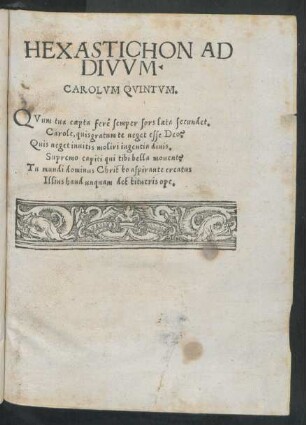 HEXASTICHON AD
DIVVM
CAROLVM QVINTVM.
QVum tua cepta ferè semper sors lata secundet.
Carole, quis gratum te neget esse Deo?
Quis neget invitis moliri ingentia divis,
Supremo capiti qui tibi bella movent?
Tu mundi dominus Christo aspirante creatus
Illius haud unquam destitueris ope.